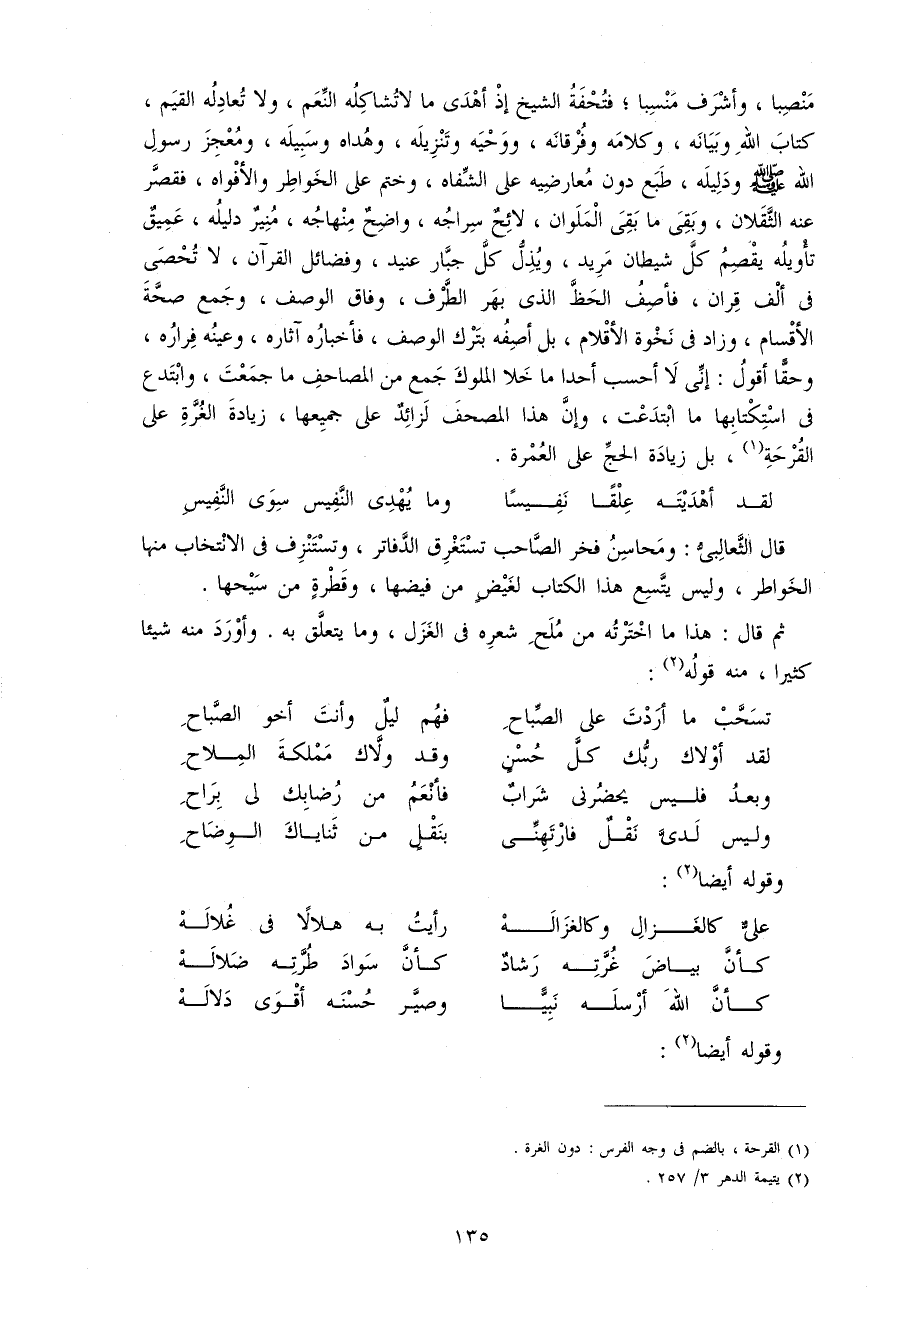 مَنْصِبا ، وأشْرَف مَنْسِبا ؛ فتُحْفَةُ الشيخ إذْ أهْدَى ما لاتُشاكِلُه النِّعَم ، ولا تُعادِلُه القِيَم ،
كتابَ اللهِ وبَيَانَه ، وكلامَه وفُرْقانَه ، ووَحْيَه وتَنْزِيلَه ، وهُداه وسَبِيلَه ، ومُعْجِزَ رسولِ
الله ﷺ ودَلِيلَه ، طَبَع دون مُعارضِيه على الشِّفاه ، وختم على الخَواطِر والأفْواه ، فقصَّر
عنه الثَّقَلان ، وبَقِىَ ما بَقِىَ الْمَلَوان ، لائِحٌ سِراجُه ، واضِحٌ مِنْهاجُه ، مُنِيرٌ دليلُه ، عَمِيقٌ
تأْوِيلُه يقْصِمُ كلَّ شيطان مَرِيد ، ويُذِلُّ كلَّ جبَّار عنيد ، وفضائل القرآن ، لا تُحْصَى
فى ألْف قِران ، فأصِفُ الحَظَّ الذى بهَر الطَّرْف ، وفاق الوصف ، وجَمع صحَّةَ
الأقْسام ، وزاد فى نَخْوة الأقْلام ، بل أصِفُه بتَرْك الوصف ، فأخبارُه آثاره ، وعينُه فِرارُه ،
وحقًّا أقولُ : إنِّى لَا أحسب أحدا ما خَلا الملوكَ جَمع من المصاحفِ ما جمَعْتَ ، وابْتدع
فى اسْتِكْتابِها ما ابْتدَعْت ، وإنَّ هذا المصحفَ لَزائِدٌ على جميعِها ، زيادةَ الغُرَّةِ على
القُرْحَةِ(١) ، بل زيادَة الحجِّ على العُمْرة .
لقد أهْدَيْتَه عِلْقًا نَفِيسًا وما يُهْدِى النَّفِيس سِوَى النَّفِيسِ
قال الثَّعالِبىُّ : ومَحاسِنُ فخر الصَّاحب تسْتَغْرِق الدَّفاتر ، وتسْتَنْزِف فى الانْتخاب منها
الخَواطر ، وليس يتَّسِع هذا الكتاب لغَيْضٍ من فيضها ، وقَطْرةٍ من سَيْحها .
ثم قال : هذا ما اخْتَرْتُه من مُلَحِ شعرِه فى الغَزَل ، وما يتعلَّق به . وأوْرَدَ منه شيئا
كثيرا ، منه قولُه(٢) :
تسَحَّبْ ما أرَدْتَ على الصِّباحِ فهُم ليلٌ وأنتَ أخو الصَّباحِ
لقد أوْلاك ربُّك كلَّ حُسْنٍ وقد ولَّاك مَمْلكةَ المِلاحِ
وبعدُ فليس يحضرُنى شرابٌ فأنْعَمُ من رُضابِك لى بِرَاحِ
وليس لَدىَّ نَقْلٌ فارْتهِنِّى بنَقْلٍ من ثَناياكَ الوِضَاحِ
وقوله أيضا(٢) :
علىٌّ كالغَزالِ وكالغزَالَهْ رأيتُ به هلالًا فى غُلالَهْ
كأنَّ بياضَ غُرَّتِه رَشادٌ كأنَّ سَوادَ طُرَّتِه ضَلالَهْ
كأنَّ اللهَ أرْسلَه نَبِيًّا وصيَّر حُسْنَه أقْوَى دَلالَهْ
وقوله أيضا(٢) :
(١) القرحة ، بالضم فى وجه الفرس : دون الغرة .
(٢) يتيمة الدهر ٣/ ٢٥٧ .
١٣٥